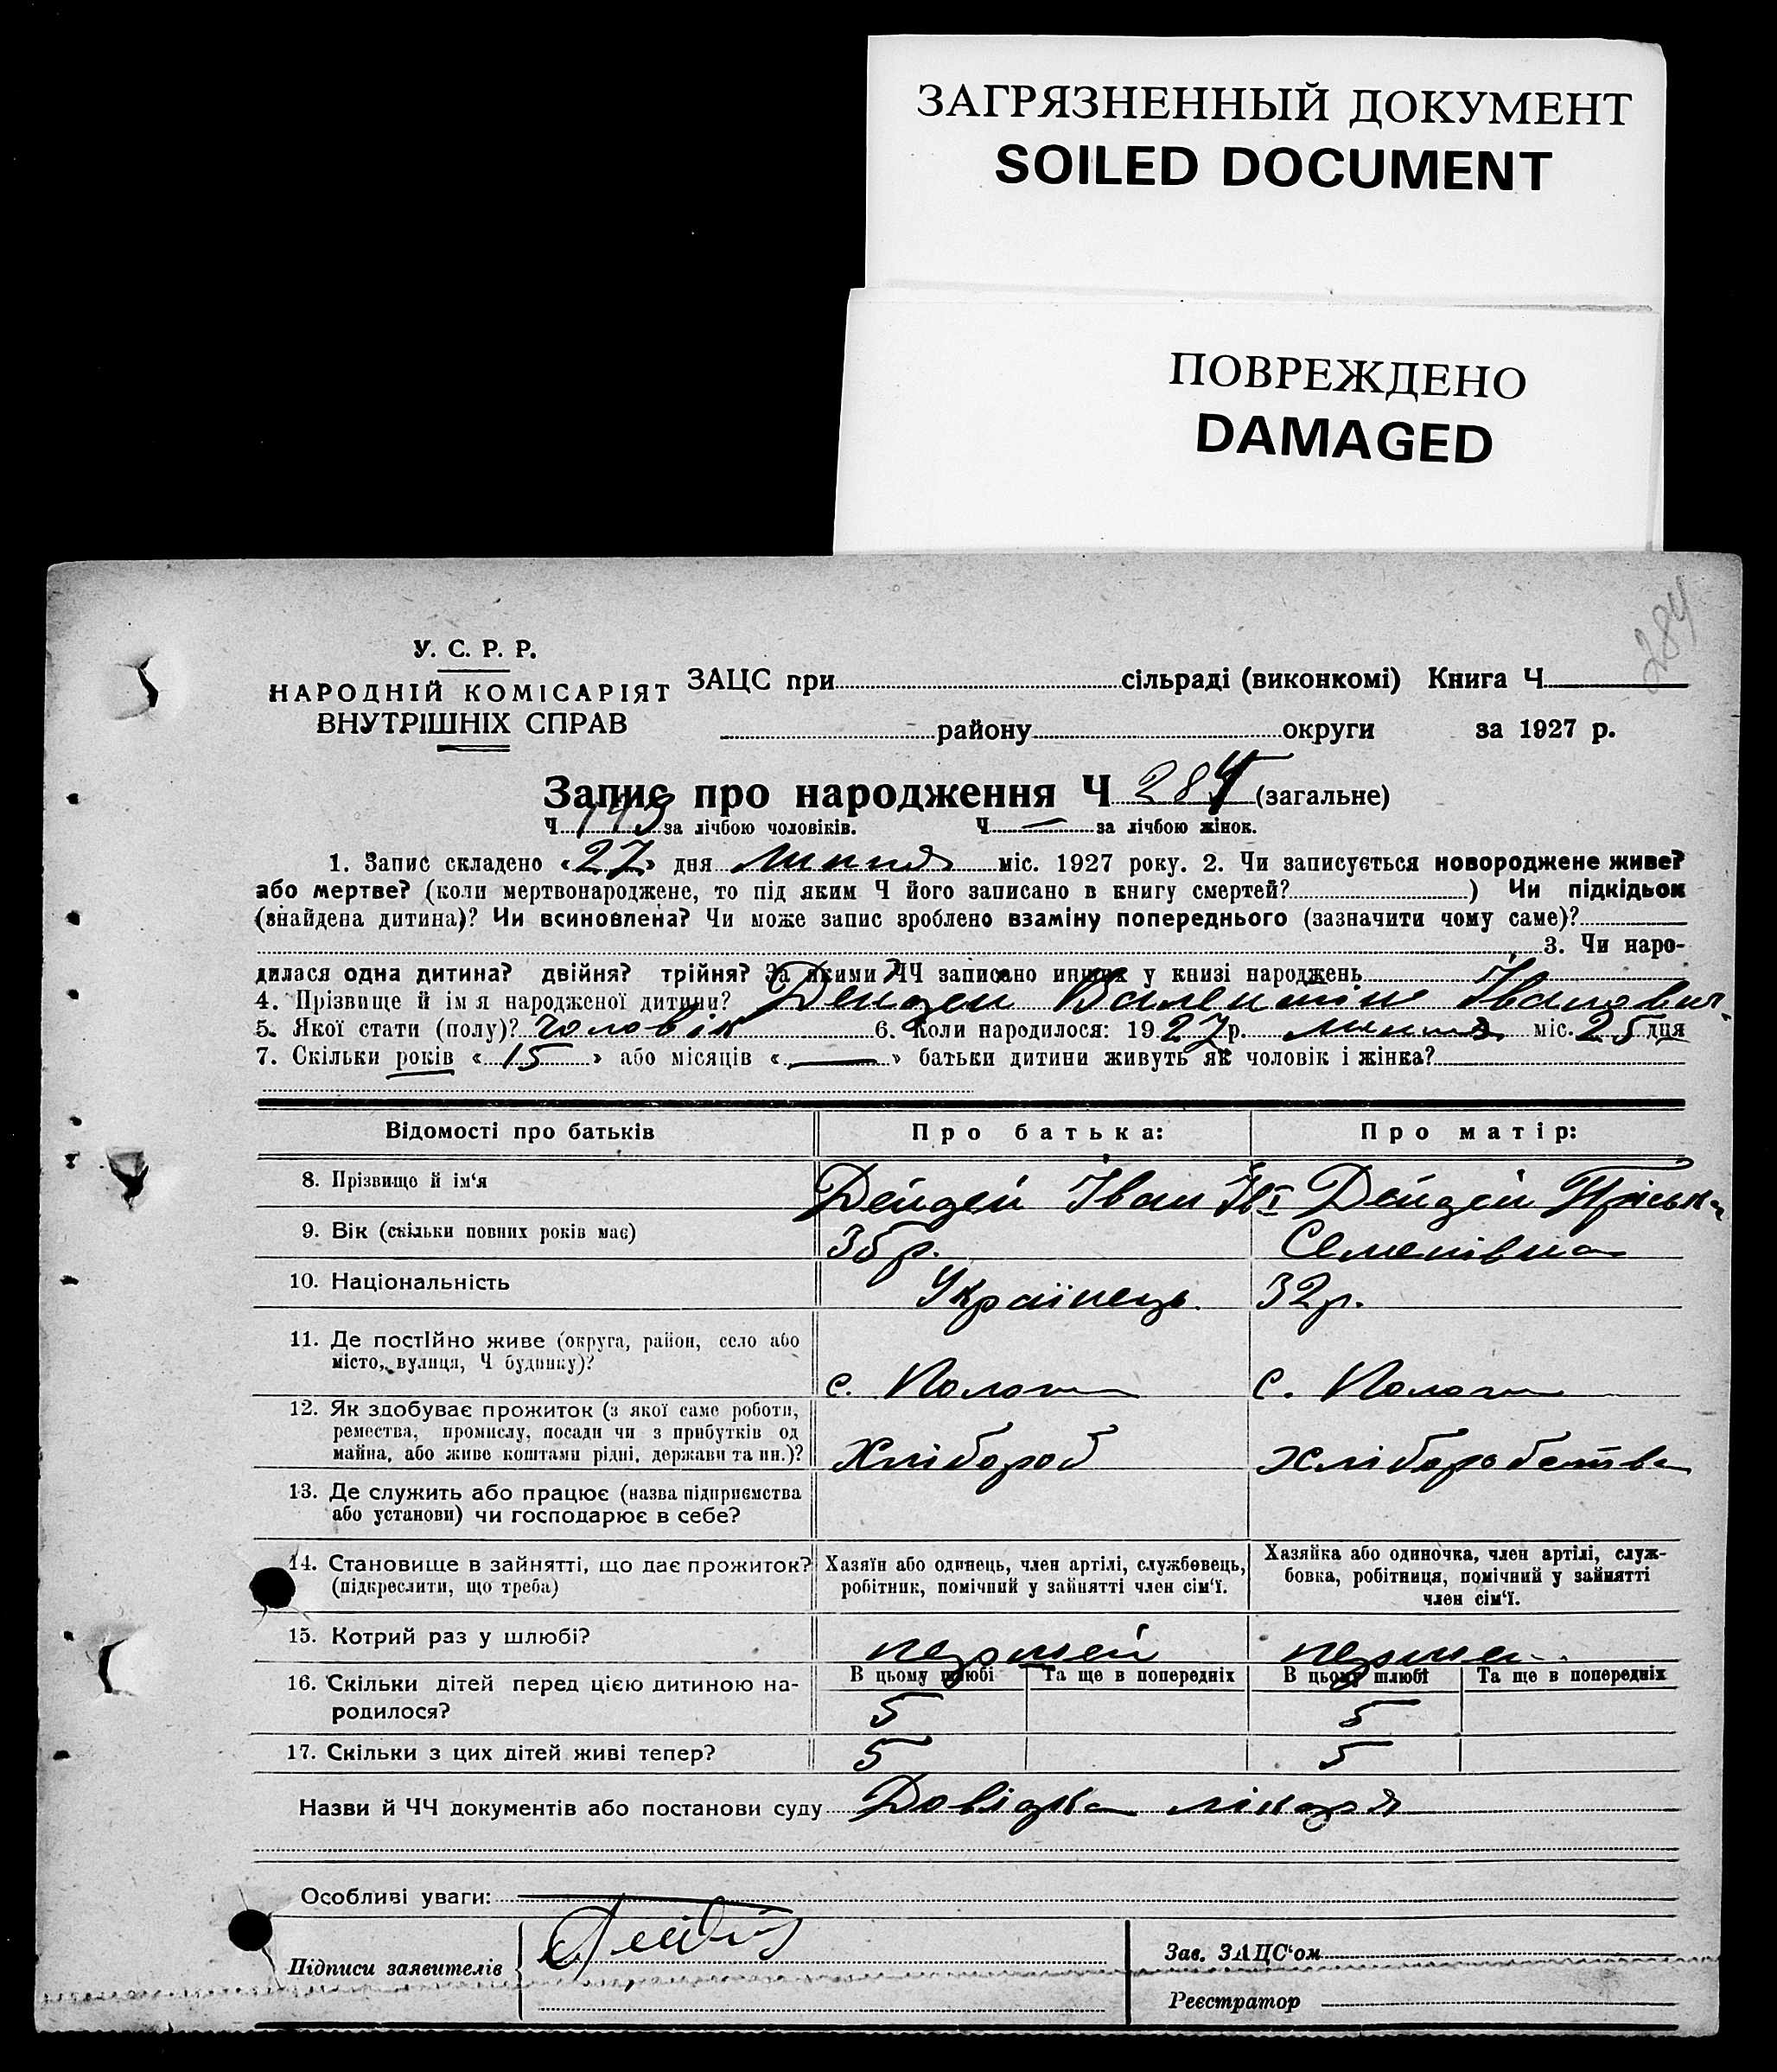 ЗАГРЯЗНЕННЫЙ ДОКУМЕНТ
SOILED DOCUMENT
ПОВРЕЖДЕНО
DAMAGED
284
У. С. Р. Р.
НАРОДНІЙ КОМІСАРІЯТ
ВНУТРІШНІХ СПРАВ
ЗАЦС при сільраді (виконкомі) Книга Ч
району округи за 1927 р.
Запис про народження Ч 284 (загальне)
Ч 143 за лічбою чоловіків. Ч — за лічбою жінок.
1. Запис складено «27» дня липня міс. 1927 року. 2. Чи записується новороджене живе?
або мертве? (коли мертвонароджене, то під яким Ч його записано в книгу смертей? ) Чи підкідьок
(знайдена дитина)? Чи всиновлена? Чи може запис зроблено взаміну попереднього (зазначити чому саме)?
3. Чи наро-
дилася одна дитина? двійня? трійня? За якими ЧЧ записано инших у книзі народжень
4. Прізвище й ім я народженої дитини? Дейдей Валентин Іванович
5. Якої стати (полу)? чоловік 6. Коли народилося: 1927 р. липня міс. 25 дня
7. Скільки років «15» або місяців «—» батьки дитини живуть як чоловік і жінка?
Відомості про батьків Про батька: Про матір:
8. Прізвище й ім‘я Дейдей Іван Ів. Дейдей Пріська
9. Вік (скільки повних років має) 35 р. Семенівна
10. Національність Українець 32 р.
11. Де постІйно живе (округа, район, село або
місто, вулиця, Ч будинку)?
с. Пологи с. Пологи
12. Як здобуває прожиток (з якої саме роботи,
ремества, промислу, посади чи з прибутків од
майна, або живе коштами рідні, держави та ин.)?
Хлібороб Хліборобства
13. Де служить або працює (назва підприємства
або установи) чи господарює в себе?
14. Становище в зайнятті, що дає прожиток?
(підкреслити, що треба)
Хазяїн або одинець, член артілі, службовець,
робітник, помічний у зайнятті член сім‘ї.
Хазяйка або одиночка, член артілі, служ-
бовка, робітниця, помічний у зайнятті
член сім‘ї.
15. Котрий раз у шлюбі? першей першей
В цьому шлюбі Та ще в попередніх В цьому шлюбі Та ще в попередніх
16. Скільки дітей перед цією дитиною на-
родилося?
5 5
17. Скільки з цих дітей живі тепер? 5 5
Назви й ЧЧ документів або постанови суду Довідка лікаря
Особливі уваги:
Підписи заявителів
Зав. ЗАЦС‘ом
Реєстратор